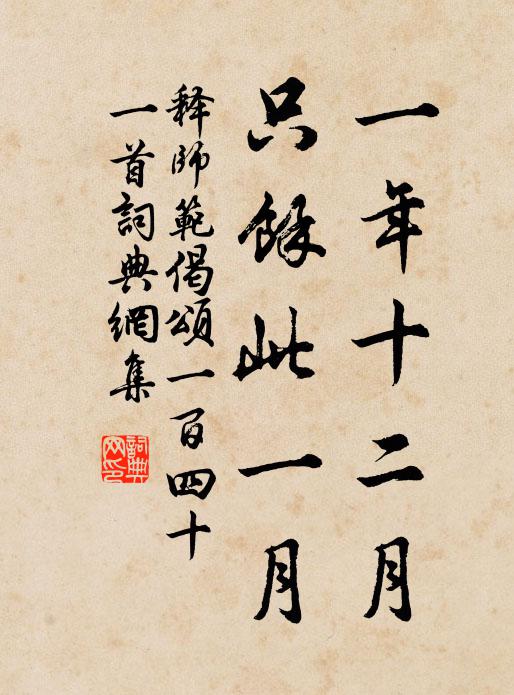 一年十二月
只餘此一月
释師範偈頌一百四十
一首詞典網集
詞典
网印